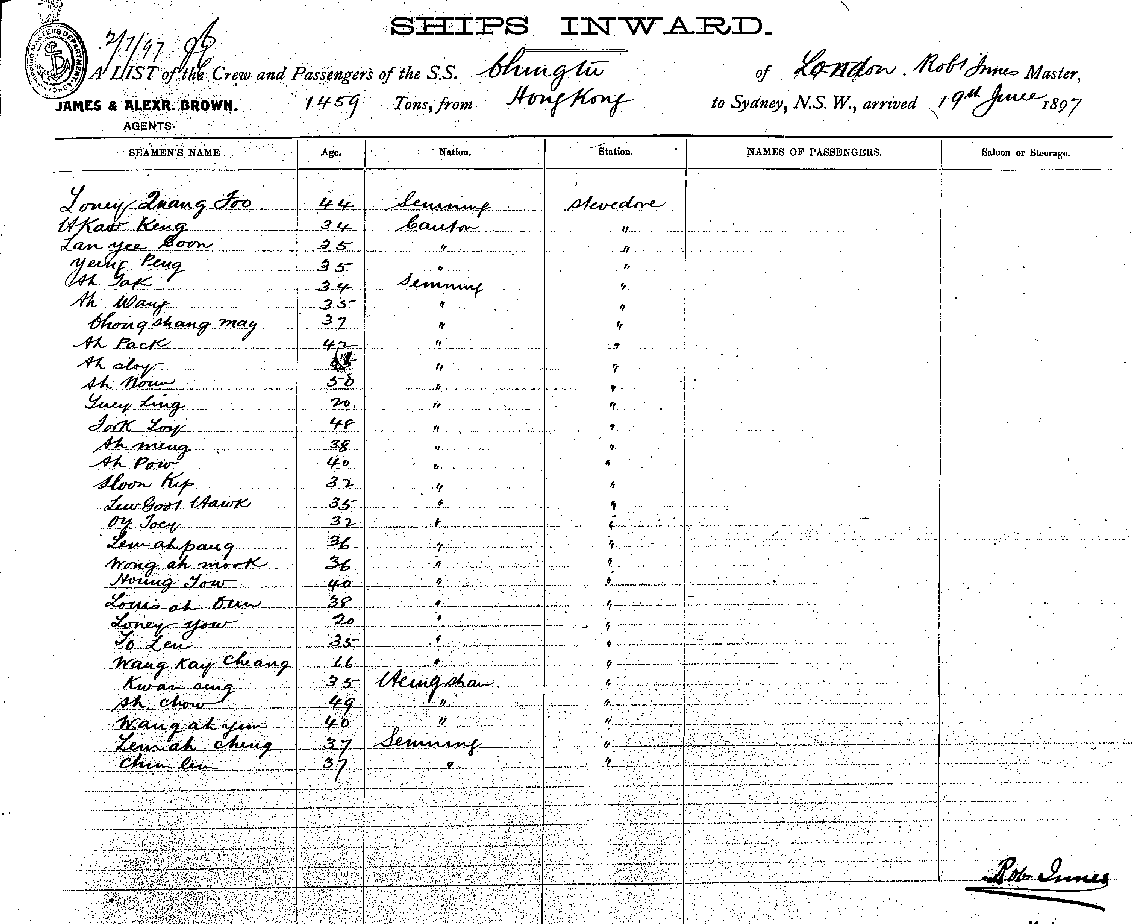 SHIPS INWARD.
2/7/97
A LIST of the Crew and Passengers of the S.S. Chingtu of London. Robt Innes Master,
JAMES & ALEXR. BROWN. 1459 Tons, from Hong Kong to Sydney, N.S.W., arrived 19th June 1897
AGENTS.
SEAMEN'S NAME Age. Nation. Station. NAMES OF PASSENGERS. Saloon or Steerage.
Loney Quang Foo 44 Semning Stevedore
Keng 34 Canton "
Lan yee Coon 35 " "
Yeung Peng 35 " "
Ah Tak 34 Semning "
Ah Wang 35 " "
Chong shang may 37 " "
Ah Pack 42 " "
Ah " "
Ah Noun 50 " "
Guey Ling 20 " "
Tork Loy 48 " "
Ah meng 38 " "
Ah Pow 40 " "
Sloon Kip 32 " "
Lew Goot Hawk 35 " "
Oy Toey 32 " "
Lem ah pang 36 " "
Wong ah mook 36 " "
Houng Tow 40 " "
Louis ah Dun 38 " "
Loney yow 20 " "
To Len 35 " "
Wang Kay Cheang 16 " "
Kwan sing 35 Heungshan "
Ah Chow 49 " "
Wang ah yun 40 " "
Lem ah Cheng 37 Semning "
Chun lin 37 " "
Robt Innes